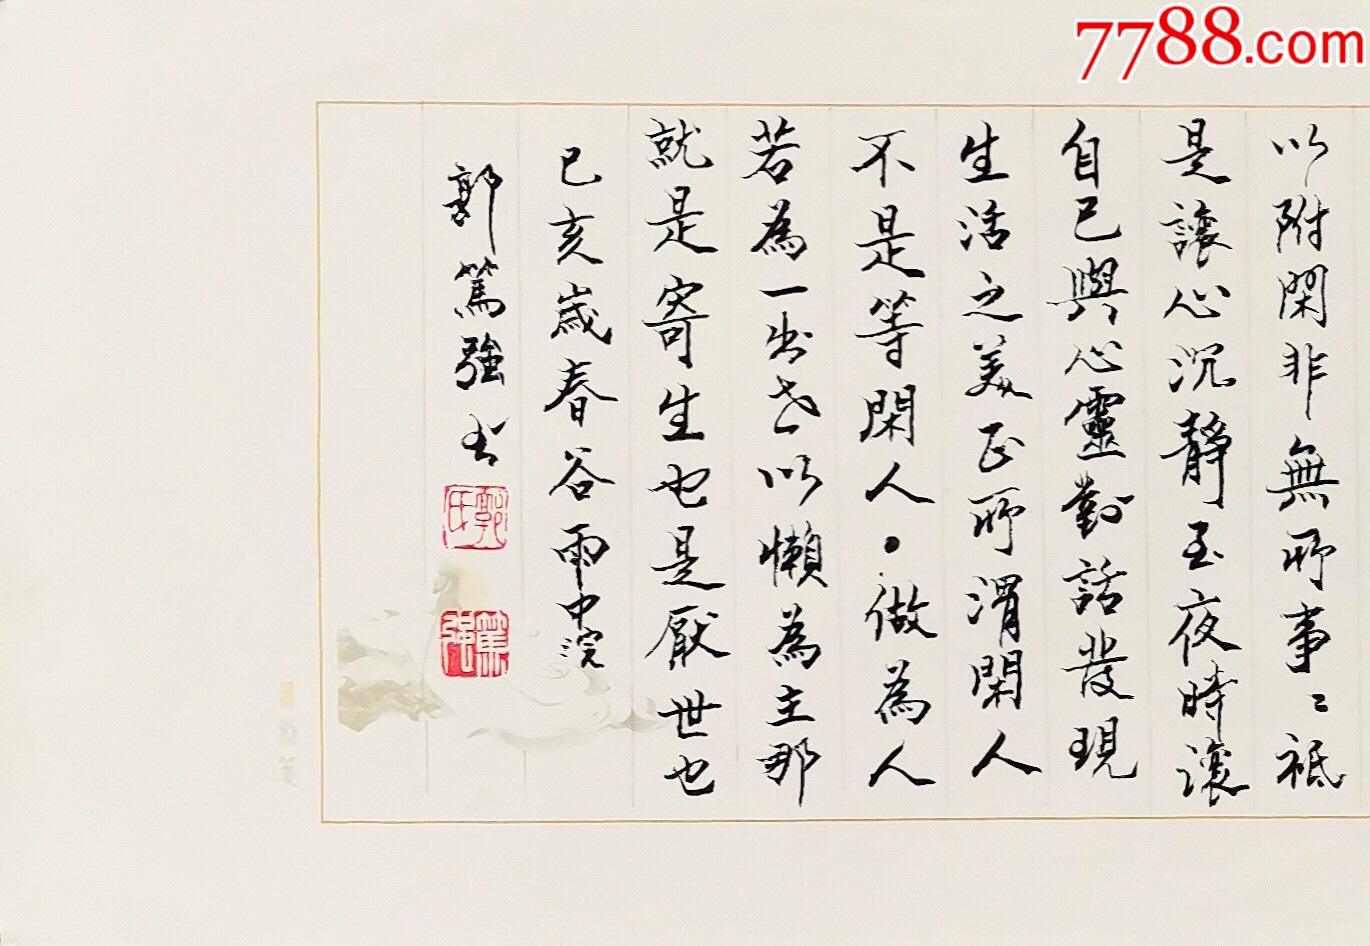 7788.com
以附閑非無所事〻祗
是讓心沉靜至夜時讓
自己與心靈對話發現
生活之美正所謂閑人
不是等閑人·做為人
若為一出世以懶為主那
就是寄生也是厭世也
己亥歲春谷雨中浣
郭篤強書
郭氏
篤強
箋